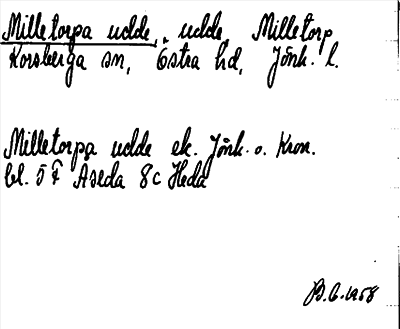 Milletorpa udde, udde, Milletorp
Korsberga sn, Östra hd, Jönk. l.
Milletorpa udde ek. Jönk. o. Kron.
bl. 5 F Åseda 8c Heda
B.G. 1958